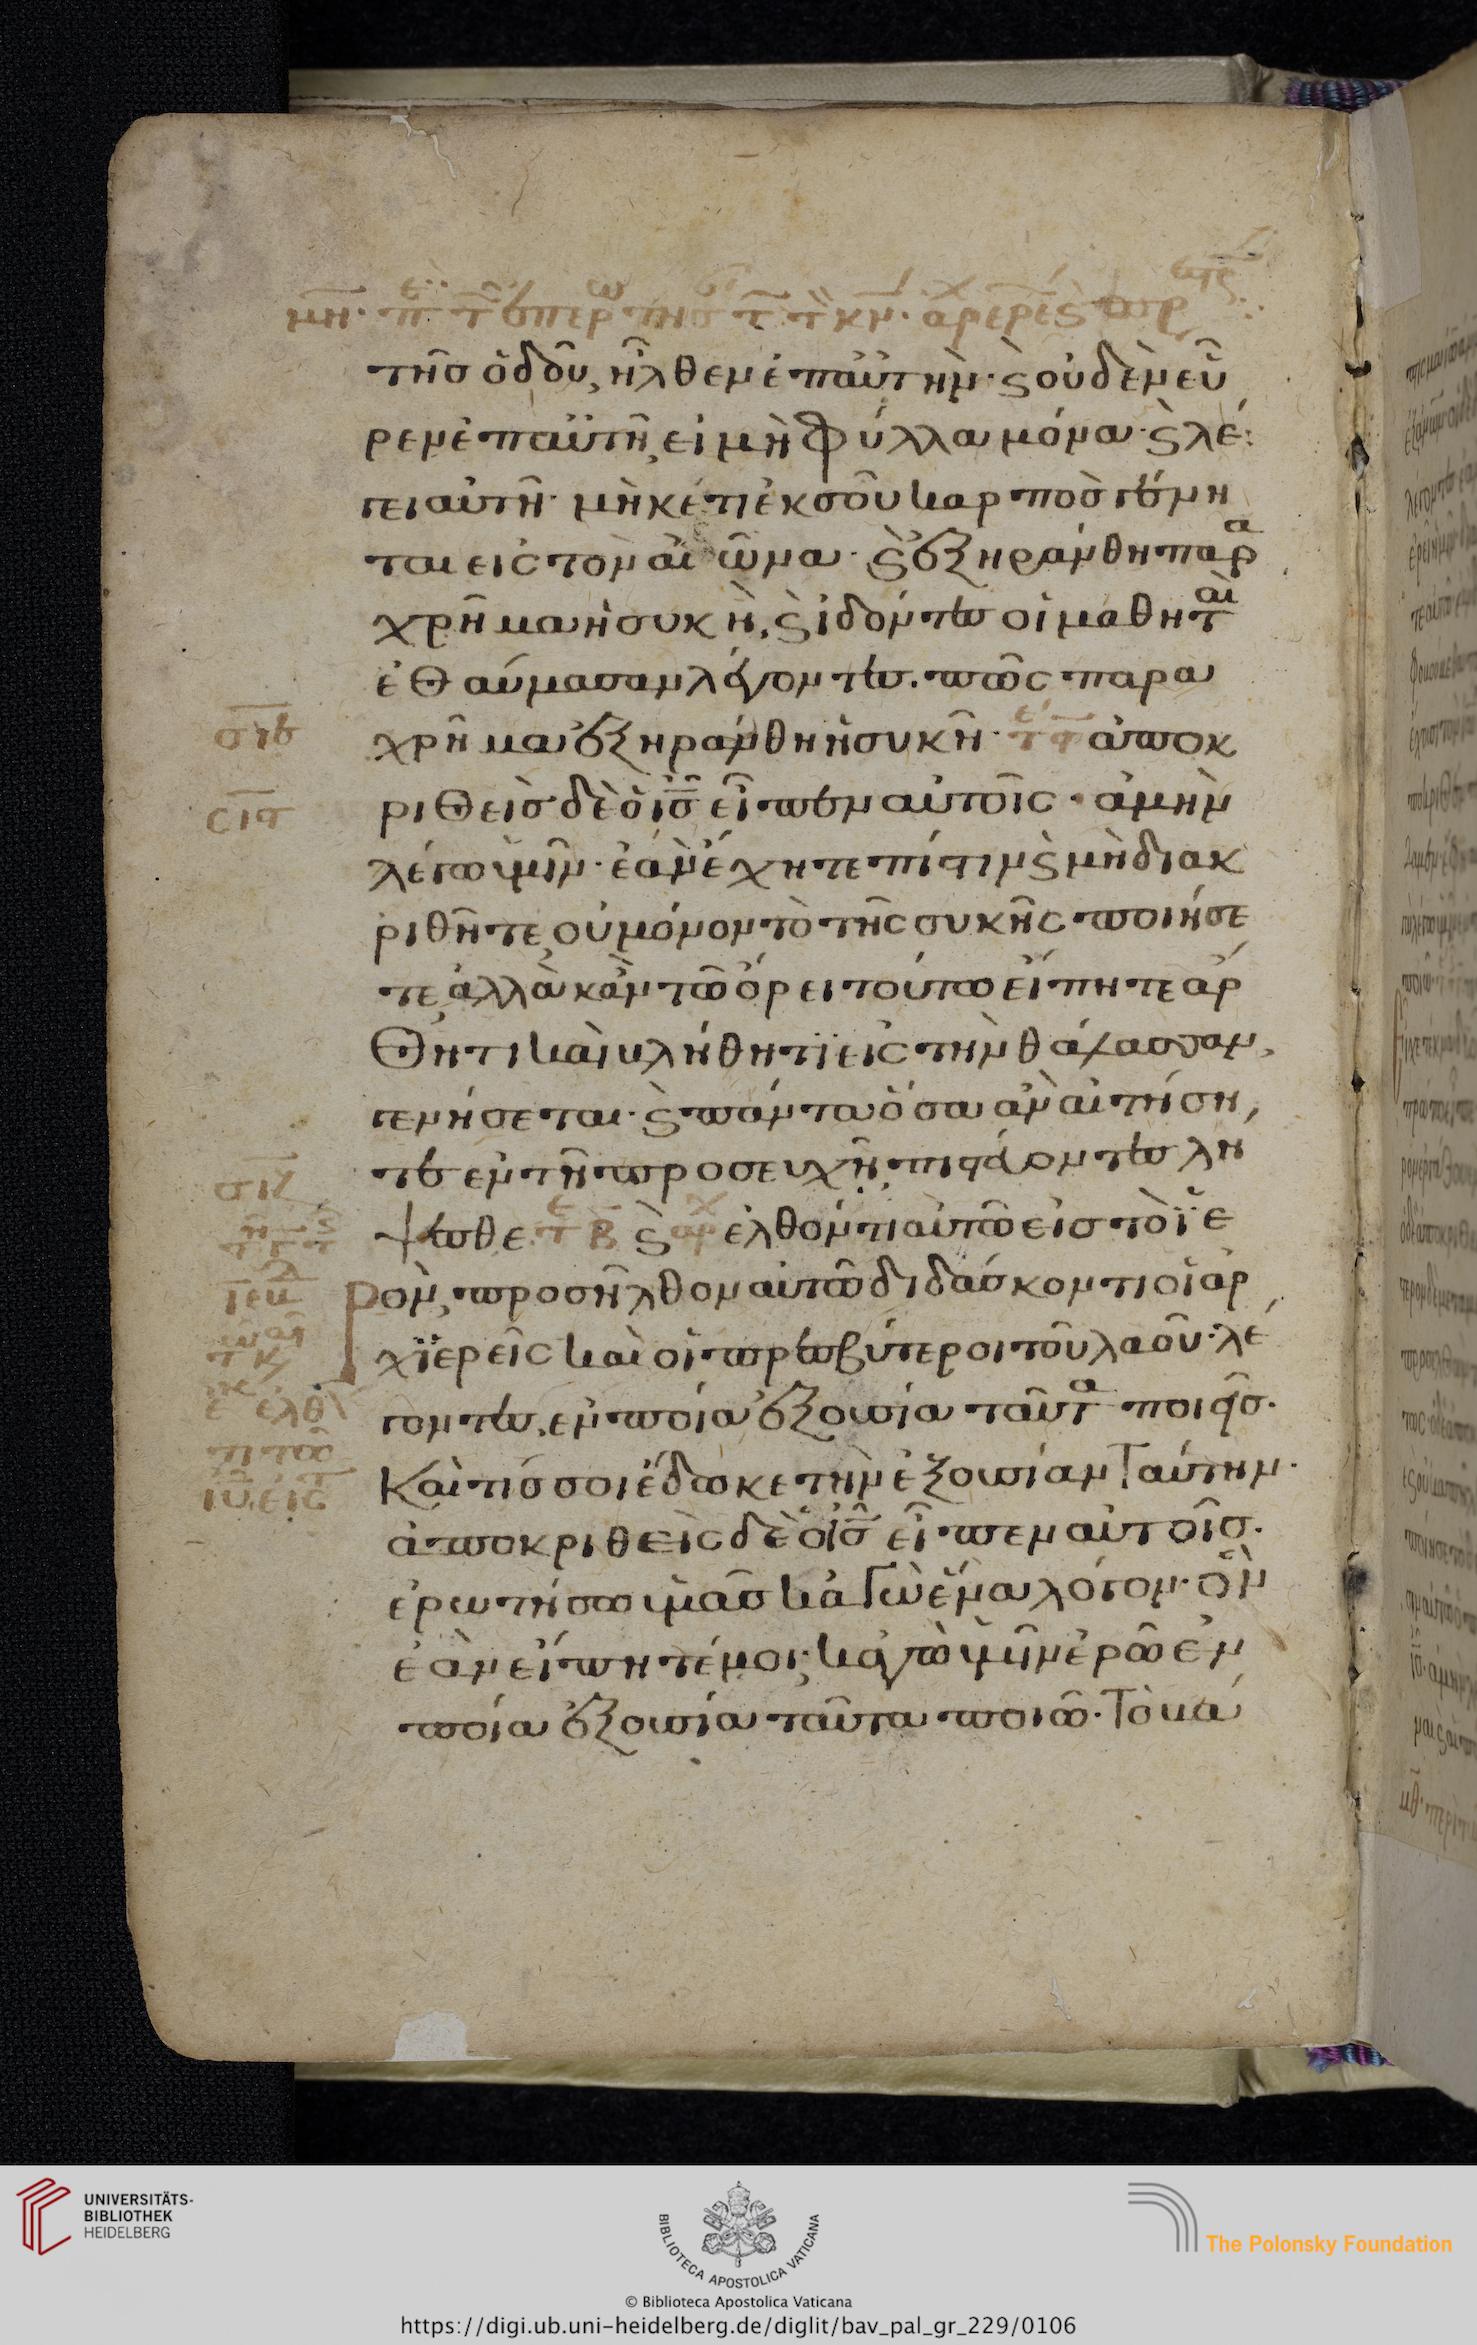 τῆσ ὁδοῦ, ἦλθεν ἐπ αὐτὴν· ϛ οὐδὲν εὗ
ρεν ἐπ αὐτῆ, εἰ μὴ φύλλα μόνα· ϛ λέ
γει αὐτῆ· μὴκέτι ἐκ σοῦ καρπὸσ γένη
ται εἰς τον αἰῶνα· ϛ ἐξηράνθη παρα
χρῆμα ἡ συκὴ, ϛ ἰδόντεσ οἱ μαθηταὶ
ἐθαύμασαν λέγοντεσ. πῶς παρα
σιβ
χρῆμα ἐξηράνθη ἡ συκῆ· ἀποκ
ϲιϛ
ριθεὶσ δὲ ὁ ισ εἶπεν αὐτοῖς· ἀμὴν
λέγω ὑμῖν· ἐὰν ἔχητε πίστιν ϛ μὴ διακ
ριθῆτε, οὐ μόνον τὸ τῆς συκῆς ποιήσε
τε, ἀλλὰ κἂν τῶ ὄρει τούτω εἴπητε ἄρ
θητι καὶ κλήθητι εἰς τὴν θάλασσαν,
γενήσεται· ϛ πάντα ὅσα ἂν αἰτήση,
τε ἐν τῆ προσευχῆ, πιστεύοντεσ λή
ψεσθε. ϛ ελθόντι αὐτῶ εἰσ τὸ ϊε
ρον, προσῆλθον αὐτῶ διδάσκοντι οἱ ἀρ
χϊερεῖς καὶ οἱ πρεσβύτεροι τοῦ λαοῦ· λέ
γοντεσ, ἐν ποία ἐξουσία ταῦτα ποιεῖσ·
Καὶ τίσ σοι ἔδωκε τὴν ἐξουσίαν ταύτην·
ἀποκριθεὶς δὲ ὁ ισ εἶπεν αὐτοῖσ·
ἐρωτήσω ὑμᾶσ κἀγὼ ἕνα λόγον· ὃν
ἐὰν εἴπητέ μοι, κἀγὼ ὑμῖν ἐρῶ ἐν
ποία ἐξουσία ταῦτα ποιῶ· Τὸ βά
UNIVERSITÄTS-
BIBLIOTHEK
HEIDELBERG
BIBLIOTECA APOSTOLICA VATICANA
The Polonsky Foundation
© Biblioteca Apostolica Vaticana
https://digi.ub.uni-heidelberg.de/diglit/bav_pal_gr_229/0106